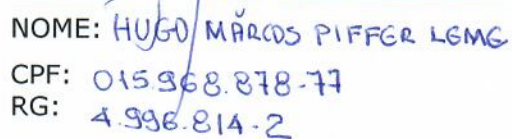 NOME: HUGO MARCOS PIFFER LEME
CPF: 015.968.878-77
RG: 4.996.814-2